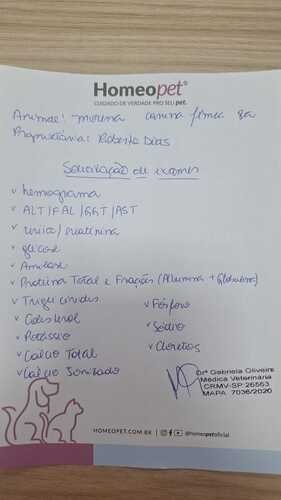 Homeopet®
CUIDADO DE VERDADE PRO SEU pet.
Animal: morena canina fêmea 8a
Proprietária: Roberta Dias
Solicitação de exames
✓ hemograma
✓ ALT/FAL/GGT/AST
✓ ureia/creatinina
✓ glicose
✓ Amilase
✓ Proteína Total e Frações (Albumina + Globulina)
✓ Triglicérides
✓ Colesterol
✓ Potássio
✓ Cálcio Total
✓ Cálcio Ionizado
✓ Fósforo
✓ Sódio
✓ Cloretos
Drª Gabriela Oliveira
Médica Veterinária
CRMV-SP 26553
MAPA 7036/2020
HOMEOPET.COM.BR | @homeopetoficial